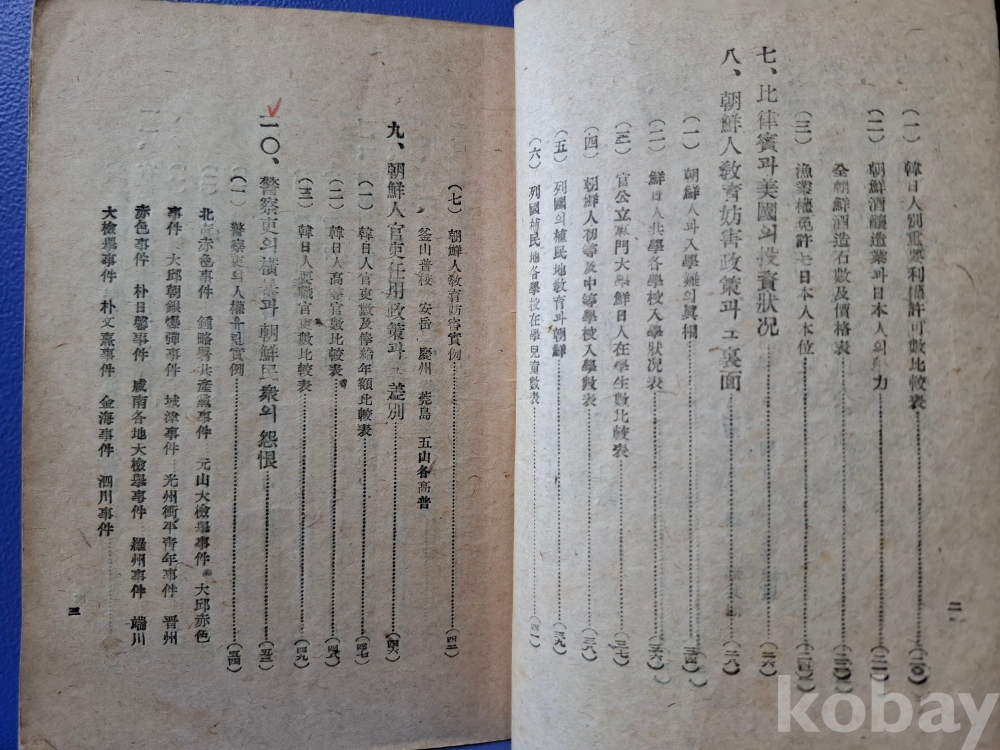 (一) 韓日人別重要利權許可數比較表 (二〇)
(二) 朝鮮酒釀造業과 日本人의 力 (二一)
全朝鮮酒造石數及價格表
(三) 漁業權免許도 日本人本位
七、比律賓과 美國의 投資狀况 (二六)
八、朝鮮人敎育妨害政策과 그 裏面 (二八)
(一) 朝鮮人과 入學難의 眞相 (三四)
(二) 鮮日人共學各學校入學狀况表 (三六)
(三) 官公立專門大學鮮日人在學生數比較表 (三七)
(四) 朝鮮人初等及中等學校入學數表 (三八)
(五) 列國의 植民地敎育과 朝鮮 (三九)
(六) 列國植民地各學校在學兒童數表 (四一)
二
(七) 朝鮮人敎育妨害實例 (四二)
釜山普校 安岳 慶州 莞島 五山各高普
九、朝鮮人官吏任用政策과 差別 (四六)
(一) 韓日人官吏數及俸給年額比較表 (四七)
(二) 韓日人高等官數比較表 (四八)
(三) 韓日人要職官吏數比較表 (四九)
一〇、警察吏의 橫暴과 朝鮮民衆의 怨恨 (五三)
(一) 警察吏의 人權蹂躪實例 (五四)
北靑赤色事件 鍾路署共產黨事件 元山大檢擧事件 大邱赤色
事件 大邱朝鮮銀爆彈事件 城津事件 光州衝平靑年事件 晋州
赤色事件 朴日馨事件 咸南各地大檢擧事件 羅州事件 端川
大檢擧事件 朴文熹事件 金海事件 泗川事件
三
kobay